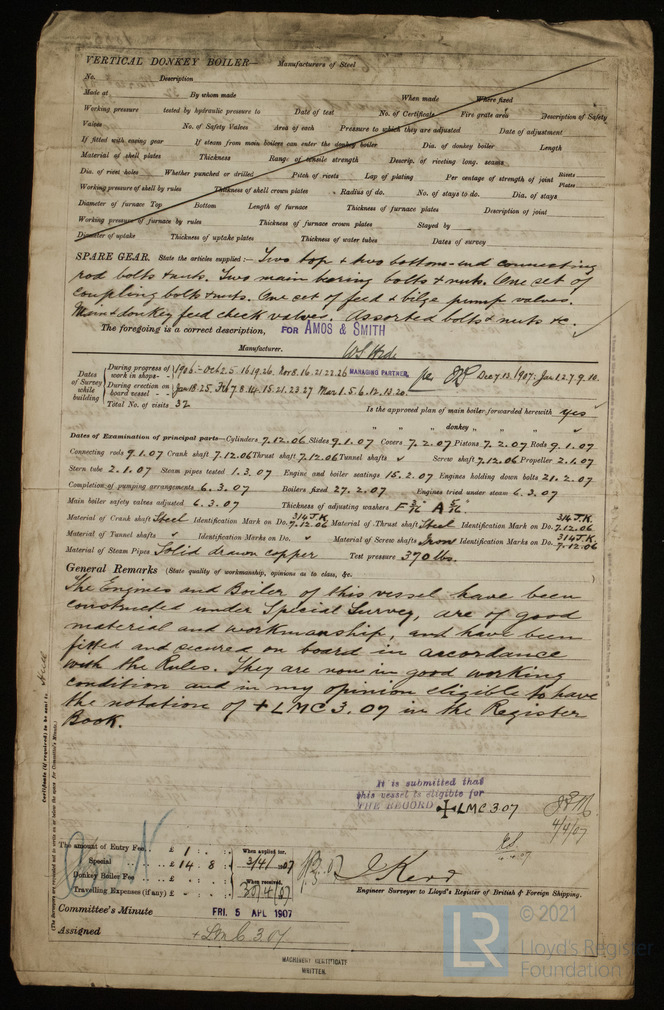 VERTICAL DONKEY BOILER— Manufacturers of Steel
No. Description
Made at By whom made When made Where fixed
Working pressure tested by hydraulic pressure to Date of test No. of Certificate Fire grate area Description of Safety
Valves No. of Safety Valves Area of each Pressure to which they are adjusted Date of adjustment
If fitted with easing gear If steam from main boilers can enter the donkey boiler Dia. of donkey boiler Length
Material of shell plates Thickness Range of tensile strength Descrip. of riveting long. seams
Dia. of rivet holes Whether punched or drilled Pitch of rivets Lap of plating Per centage of strength of joint Rivets Plates
Working pressure of shell by rules Thickness of shell crown plates Radius of do. No. of stays to do. Dia. of stays
Diameter of furnace Top Bottom Length of furnace Thickness of furnace plates Description of joint
Working pressure of furnace by rules Thickness of furnace crown plates Stayed by
Diameter of uptake Thickness of uptake plates Thickness of water tubes Dates of survey
SPARE GEAR. State the articles supplied:— Two top & two bottom end connecting
rod bolts & nuts. Two main bearing bolts & nuts. One set of
coupling bolts & nuts. One set of feed & bilge pump valves.
Main & donkey feed check valves. Assorted bolts & nuts &c.
The foregoing is a correct description, FOR AMOS & SMITH
Manufacturer. MANAGING PARTNER.
Dates of Survey while building
During progress of work in shops - - 1906:- Oct 2.5.16.19.26. Nov 8.16.21.22.26 Dec 7.13. 1907: Jan 1.2.7.9.10.
During erection on board vessel - - Jan 18.25. Feb 7.8.14.15.21.23.27 Mar 1.5.6.12.13.20.
Total No. of visits 32
Is the approved plan of main boiler forwarded herewith yes
" " donkey " " "
Dates of Examination of principal parts—Cylinders 7.12.06 Slides 9.1.07 Covers 7.2.07 Pistons 7.2.07 Rods 9.1.07
Connecting rods 9.1.07 Crank shaft 7.12.06 Thrust shaft 7.12.06 Tunnel shafts Screw shaft 7.12.06 Propeller 2.1.07
Stern tube 2.1.07 Steam pipes tested 1.3.07 Engine and boiler seatings 15.2.07 Engines holding down bolts 21.2.07
Completion of pumping arrangements 6.3.07 Boilers fixed 27.2.07 Engines tried under steam 6.3.07
Main boiler safety valves adjusted 6.3.07 Thickness of adjusting washers
Material of Crank shaft Steel Identification Mark on Do. 314 J.K. 7.12.06 Material of Thrust shaft Steel Identification Mark on Do. 314 J.K. 7.12.06
Material of Tunnel shafts " Identification Marks on Do. " Material of Screw shafts Iron Identification Marks on Do. 314 J.K. 7.12.06
Material of Steam Pipes Solid drawn copper Test pressure 370 lbs.
General Remarks (State quality of workmanship, opinions as to class, &c.
The Engines and Boiler of this vessel have been
constructed under Special Survey, are of good
material and workmanship, and have been
fitted and secured on board in accordance
with the Rules. They are now in good working
condition and in my opinion eligible to have
the notation of + LMC 3.07 in the Register
Book.
Certificate (if required) to be sent to Hull
(The Surveyors are requested not to write on or below the space for Committee's Minute.)
It is submitted that
this vessel is eligible for
THE RECORD + LMC 3.07
4/4/07
The amount of Entry Fee. . £ 1 : : When applied for.
Special . . £ 14 : 8 : 3/4/07
Donkey Boiler Fee . . £ : : When received.
Travelling Expenses (if any) £ : :
J Kerr
Engineer Surveyor to Lloyd's Register of British & Foreign Shipping.
Committee's Minute FRI. 5 APL 1907
Assigned + LMC 3.07
MACHINERY CERTIFICATE
WRITTEN.
LR © 2021
Lloyd's Register
Foundation